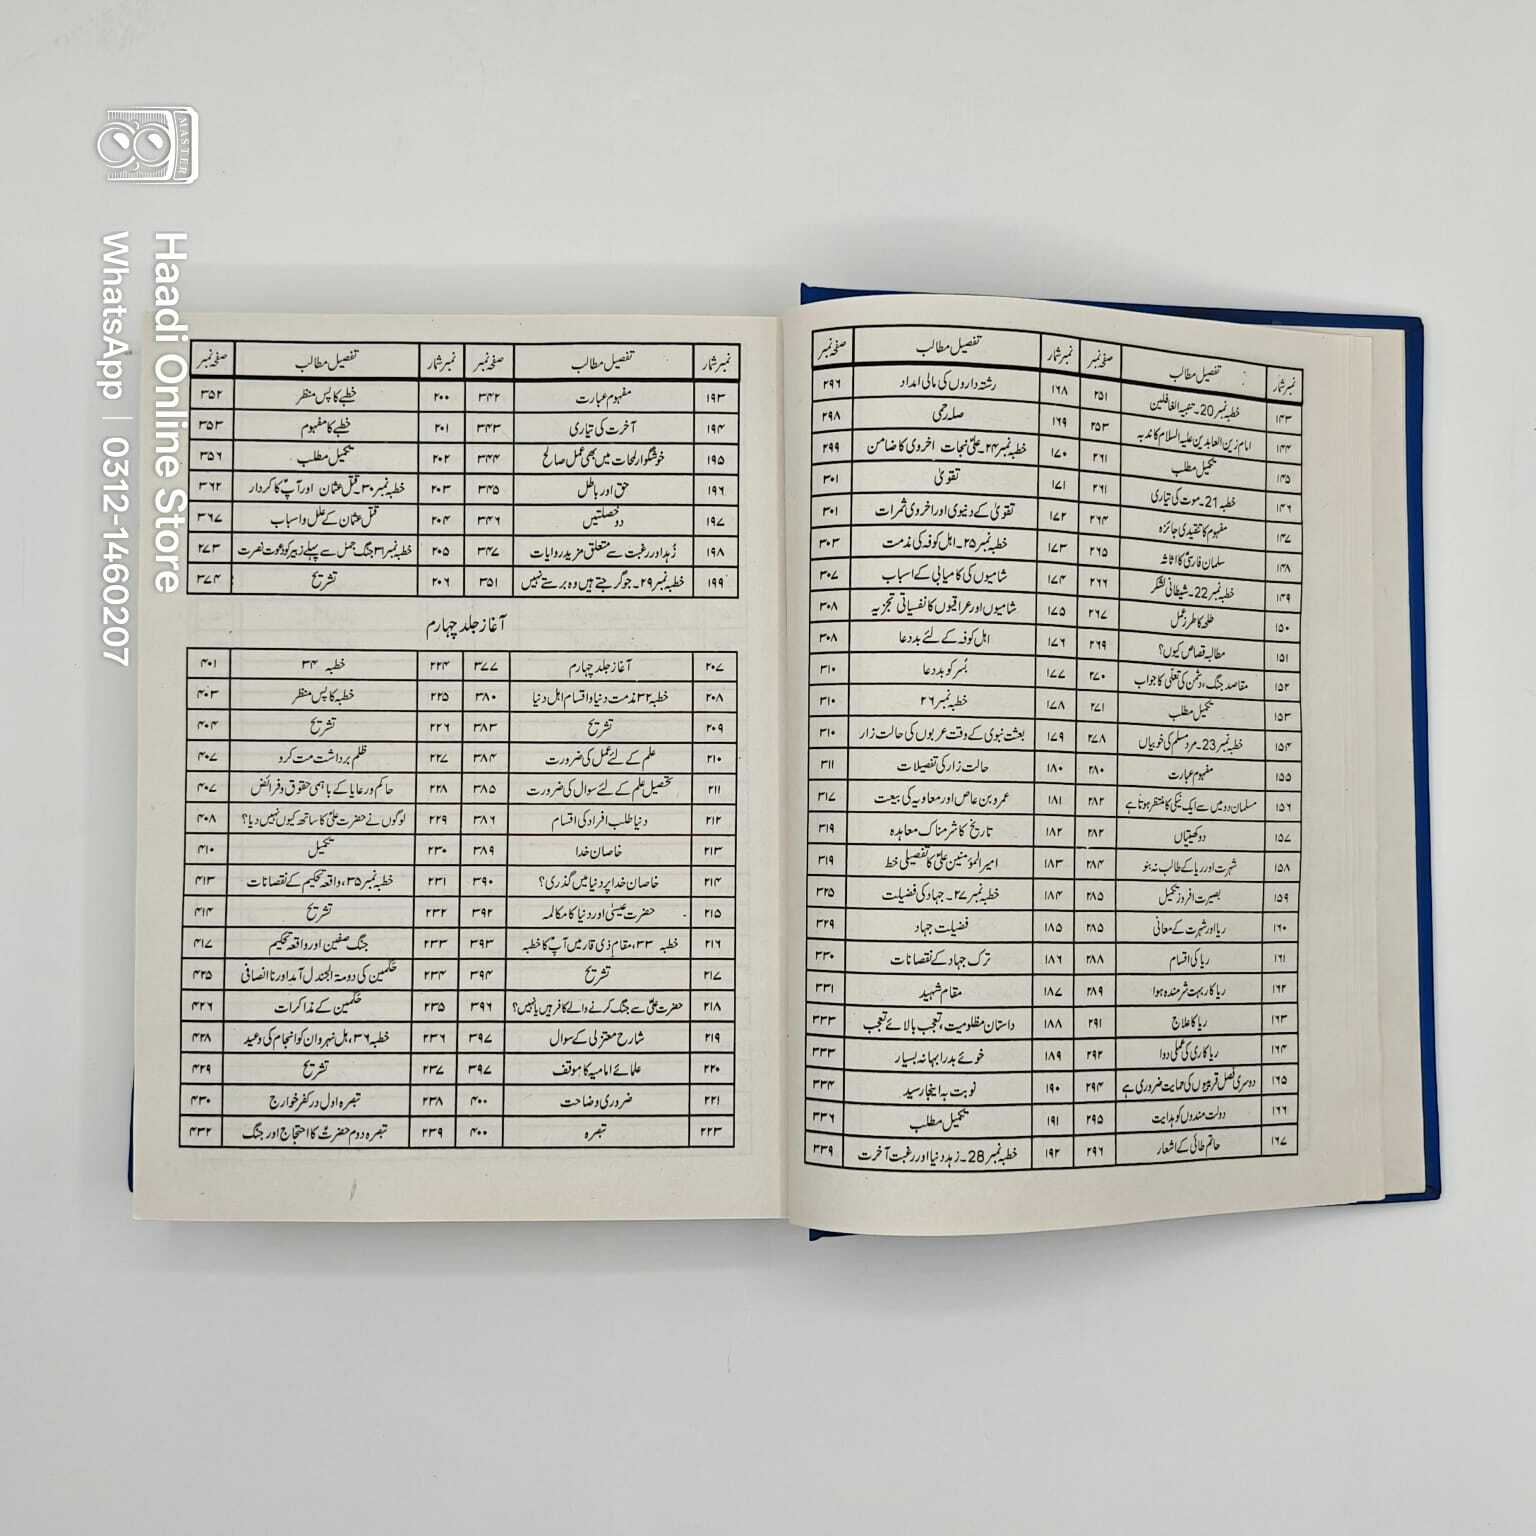 نمبر شمار تفصیل مطالب صفحہ نمبر نمبر شمار تفصیل مطالب صفحہ نمبر
۱۴۳ خطبہ نمبر 20۔ تنبیہ الغافلین ۲۵۱
۱۴۴ امام زین العابدین علیہ السلام کا ندبہ ۲۵۳
۱۴۵ تکمیل مطلب ۲۶۱
۱۴۶ خطبہ 21۔ موت کی تیاری ۲۶۱
۱۴۷ مفہوم کا تنقیدی جائزہ ۲۶۴
۱۴۸ سلمان فارسیؓ کا اثاثہ ۲۶۵
۱۴۹ خطبہ نمبر 22۔ شیطانی لشکر ۲۶۶
۱۵۰ طلحہ کا طرز عمل ۲۶۷
۱۵۱ مطالبہ قصاص کیوں؟ ۲۶۹
۱۵۲ مقاصد جنگ، دشمن کی تعلّی کا جواب ۲۷۰
۱۵۳ تکمیل مطلب ۲۷۱
۱۵۴ خطبہ نمبر 23۔ مرد مسلم کی خوبیاں ۲۷۸
۱۵۵ مفہوم عبارت ۲۸۰
۱۵۶ مسلمان دو میں سے ایک نیکی کا منتظر ہوتا ہے ۲۸۲
۱۵۷ دو کھیتیاں ۲۸۲
۱۵۸ شہرت اور ریا کے طالب نہ بنو ۲۸۴
۱۵۹ بصیرت افروز تکمیل ۲۸۵
۱۶۰ ریا اور شہرت کے معانی ۲۸۵
۱۶۱ ریا کی اقسام ۲۸۸
۱۶۲ ریا کار بہت شرمندہ ہوا ۲۸۹
۱۶۳ ریا کا علاج ۲۹۱
۱۶۴ ریا کاری کی عملی دوا ۲۹۲
۱۶۵ دوسری فصل قریبیوں کی حمایت ضروری ہے ۲۹۴
۱۶۶ دولت مندوں کو ہدایت ۲۹۵
۱۶۷ حاتم طائی کے اشعار ۲۹۶
۱۶۸ رشتہ داروں کی مالی امداد ۲۹۶
۱۶۹ صلہ رحمی ۲۹۸
۱۷۰ خطبہ نمبر ۲۴۔ علیؑ نجات اخروی کا ضامن ۲۹۹
۱۷۱ تقویٰ ۳۰۱
۱۷۲ تقویٰ کے دنیوی اور اخروی ثمرات ۳۰۱
۱۷۳ خطبہ نمبر ۲۵۔ اہل کوفہ کی مذمت ۳۰۳
۱۷۴ شامیوں کی کامیابی کے اسباب ۳۰۷
۱۷۵ شامیوں اور عراقیوں کا نفسیاتی تجزیہ ۳۰۸
۱۷۶ اہل کوفہ کے لئے بد دعا ۳۰۸
۱۷۷ بُسر کو بد دعا ۳۱۰
۱۷۸ خطبہ نمبر ۲۶ ۳۱۰
۱۷۹ بعثت نبوی کے وقت عربوں کی حالت زار ۳۱۰
۱۸۰ حالت زار کی تفصیلات ۳۱۱
۱۸۱ عمرو بن عاص اور معاویہ کی بیعت ۳۱۷
۱۸۲ تاریخ کا شرمناک معاہدہ ۳۱۹
۱۸۳ امیر المؤمنین علیؑ کا تفصیلی خط ۳۱۹
۱۸۴ خطبہ نمبر ۲۷۔ جہاد کی فضیلت ۳۲۵
۱۸۵ فضیلت جہاد ۳۲۹
۱۸۶ ترک جہاد کے نقصانات ۳۳۰
۱۸۷ مقام شہید ۳۳۱
۱۸۸ داستان مظلومیت، تعجب بالائے تعجب ۳۳۳
۱۸۹ خوئے بد را بہانہ بسیار ۳۳۳
۱۹۰ نوبت بہ اینجا رسید ۳۳۴
۱۹۱ تکمیل مطلب ۳۳۶
۱۹۲ خطبہ نمبر 28۔ زہد دنیا اور رغبت آخرت ۳۳۹
نمبر شمار تفصیل مطالب صفحہ نمبر نمبر شمار تفصیل مطالب صفحہ نمبر
۱۹۳ مفہوم عبارت ۳۴۲ ۲۰۰ خطبے کا پس منظر ۳۵۲
۱۹۴ آخرت کی تیاری ۳۴۳ ۲۰۱ خطبے کا مفہوم ۳۵۳
۱۹۵ خوشگوار لمحات میں بھی عمل صالح ۳۴۴ ۲۰۲ تکمیل مطلب ۳۵۶
۱۹۶ حق اور باطل ۳۴۵ ۲۰۳ خطبہ نمبر ۳۰۔ قتل عثمان اور آپؑ کا کردار ۳۶۲
۱۹۷ دو خصلتیں ۳۴۶ ۲۰۴ قتل عثمان کے علل و اسباب ۳۶۷
۱۹۸ زُہد اور رغبت سے متعلق مزید روایات ۳۴۷ ۲۰۵ خطبہ نمبر ۳۱ جنگ جمل سے پہلے زبیر کو دعوت نصرت ۲۷۳
۱۹۹ خطبہ نمبر ۲۹۔ جو گرجتے ہیں وہ برستے نہیں ۳۵۱ ۲۰۶ تشریح ۳۷۴
آغاز جلد چہارم
۲۰۷ آغاز جلد چہارم ۳۷۷ ۲۲۴ خطبہ ۳۴ ۴۰۱
۲۰۸ خطبہ ۳۲ مذمت دنیا و اقسام اہل دنیا ۳۸۰ ۲۲۵ خطبہ کا پس منظر ۴۰۳
۲۰۹ تشریح ۳۸۳ ۲۲۶ تشریح ۴۰۴
۲۱۰ علم کے لئے عمل کی ضرورت ۳۸۴ ۲۲۷ ظلم برداشت مت کرو ۴۰۷
۲۱۱ تحصیل علم کے لئے سوال کی ضرورت ۳۸۵ ۲۲۸ حاکم و رعایا کے باہمی حقوق و فرائض ۴۰۷
۲۱۲ دنیا طلب افراد کی اقسام ۳۸۶ ۲۲۹ لوگوں نے حضرت علیؑ کا ساتھ کیوں نہیں دیا؟ ۴۰۸
۲۱۳ خاصان خدا ۳۸۹ ۲۳۰ تکمیل ۴۱۰
۲۱۴ خاصان خدا پر دنیا میں گذری؟ ۳۹۰ ۲۳۱ خطبہ نمبر ۳۵، واقعہ تحکیم کے نقصانات ۴۱۳
۲۱۵ حضرت عیسیٰ اور دنیا کا مکالمہ ۳۹۲ ۲۳۲ تشریح ۴۱۴
۲۱۶ خطبہ ۳۳، مقام ذی قار میں آپؑ کا خطبہ ۳۹۳ ۲۳۳ جنگ صفین اور واقعہ تحکیم ۴۱۷
۲۱۷ تشریح ۳۹۴ ۲۳۴ حَکَمین کی دومۃ الجندل آمد اور نا انصافی ۴۲۵
۲۱۸ حضرت علیؑ سے جنگ کرنے والے کافر ہیں یا نہیں؟ ۳۹۶ ۲۳۵ حَکَمین کے مذاکرات ۴۲۶
۲۱۹ شارح معتزلی کے سوال ۳۹۷ ۲۳۶ خطبہ ۳۶، ہل نہروان کو انجام کی وعید ۴۲۸
۲۲۰ علمائے امامیہ کا موقف ۳۹۷ ۲۳۷ تشریح ۴۲۹
۲۲۱ ضروری وضاحت ۴۰۰ ۲۳۸ تبصرہ اول در کفر خوارج ۴۳۰
۲۲۳ تبصرہ ۴۰۰ ۲۳۹ تبصرہ دوم حضرتؑ کا احتجاج اور جنگ ۴۳۲
MASTER
Haadi Online Store
WhatsApp | 0312-1460207